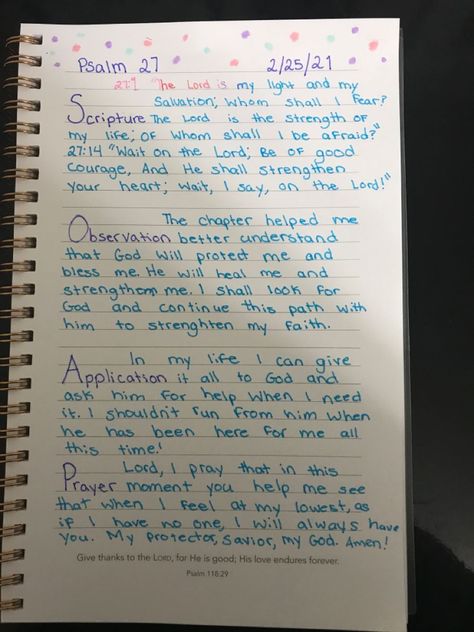 Psalm 27 2/25/21
27:1 "The Lord is my light and my
Salvation; Whom shall I fear?
Scripture The Lord is the strength of
my life; Of whom shall I be afraid?"
27:14 "Wait on the Lord; Be of good
courage, And He shall strengthen
your heart; Wait, I say, on the Lord!"
The chapter helped me
Observation better understand
that God will protect me and
bless me. He will heal me and
strengthem me. I shall look for
God and continue this path with
him to strenghten my faith.
In my life I can give
Application it all to God and
ask him for help when I need
it. I shouldn't run from him when
he has been here for me all
this time!
Lord, I pray that in this
Prayer moment you help me see
that when I feel at my lowest, as
if I have no one, I will always have
you. My protector, savior, my God. Amen!
Give thanks to the LORD, for He is good; His love endures forever.
Psalm 118:29